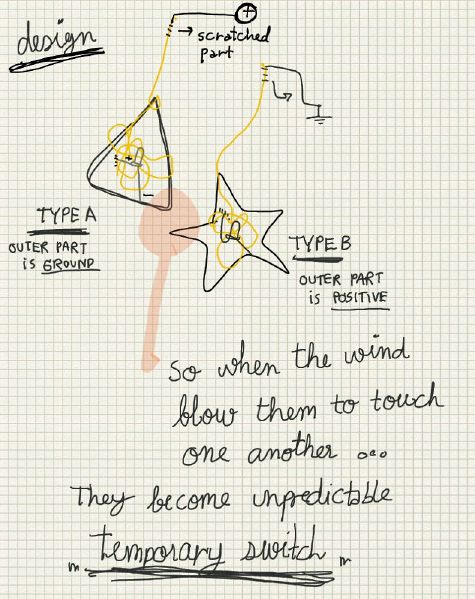 design
+
→ scratched
part
+
-
TYPE A
OUTER PART
is GROUND
TYPE B
OUTER PART
is POSITIVE
So when the wind
blow them to touch
one another ...
They become unpredictable
"temporary switch"